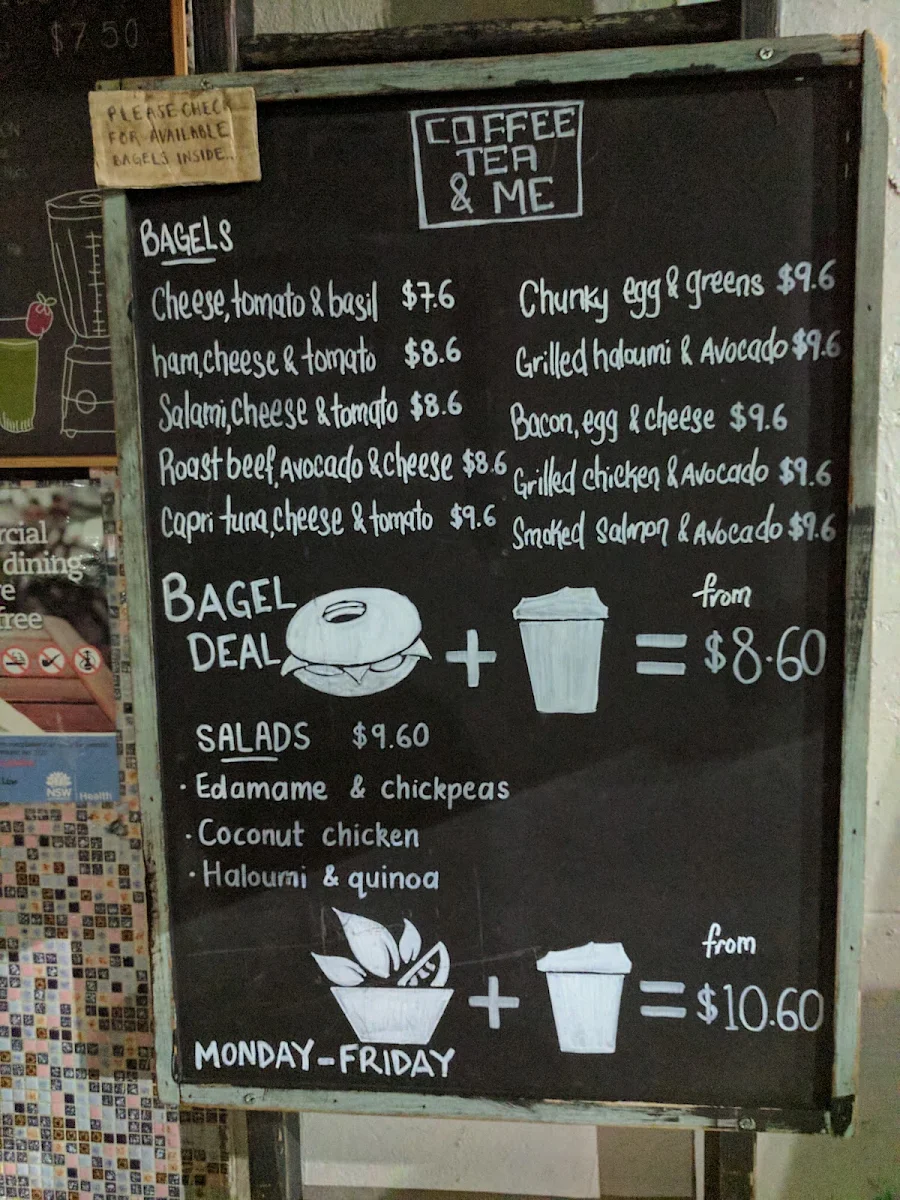 $7.50
PLEASE CHECK
FOR AVAILABLE
BAGELS INSIDE..
COFFEE
TEA
& ME
BAGELS
Cheese, tomato & basil $7.6
ham, cheese & tomato $8.6
Salami, cheese & tomato $8.6
Roast beef, Avocado & cheese $8.6
Capri tuna, cheese & tomato $9.6
Chunky egg & greens $9.6
Grilled haloumi & Avocado $9.6
Bacon, egg & cheese $9.6
Grilled chicken & Avocado $9.6
Smoked Salmon & Avocado $9.6
BAGEL
DEAL
+ =
from
$8.60
SALADS $9.60
· Edamame & chickpeas
· Coconut chicken
· Haloumi & quinoa
+ =
from
$10.60
MONDAY - FRIDAY
rcial
dining.
re
free
NSW
Health